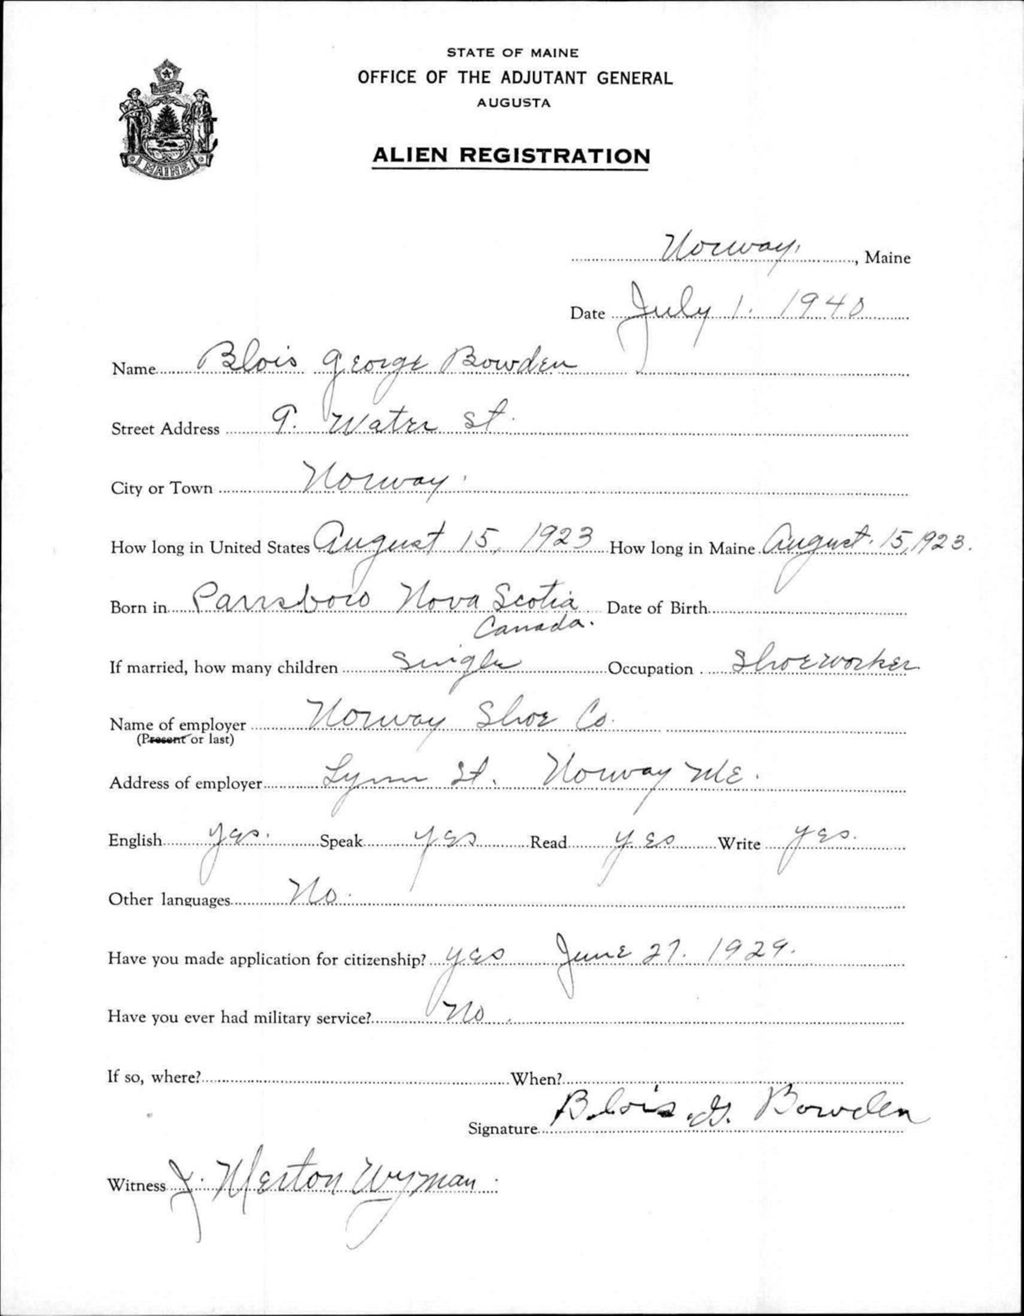 STATE OF MAINE
OFFICE OF THE ADJUTANT GENERAL
AUGUSTA
ALIEN REGISTRATION
MAINE
Norway, Maine
Date July 1. 1940
Name Blois George Bowden
Street Address 9. Water St.
City or Town Norway.
How long in United States August 15, 1923 How long in Maine August. 15, 1923.
Born in Parrsboro Nova Scotia Date of Birth
Canada.
If married, how many children Single Occupation Shoeworker
Name of employer Norway Shoe Co.
(Present or last)
Address of employer Lynn St. Norway ME.
English yes. Speak yes Read yes Write yes.
Other languages No.
Have you made application for citizenship? yes June 27. 1929.
Have you ever had military service? No.
If so, where? When?
Signature Blois. G. Bowden
Witness J. Merton Wyman.